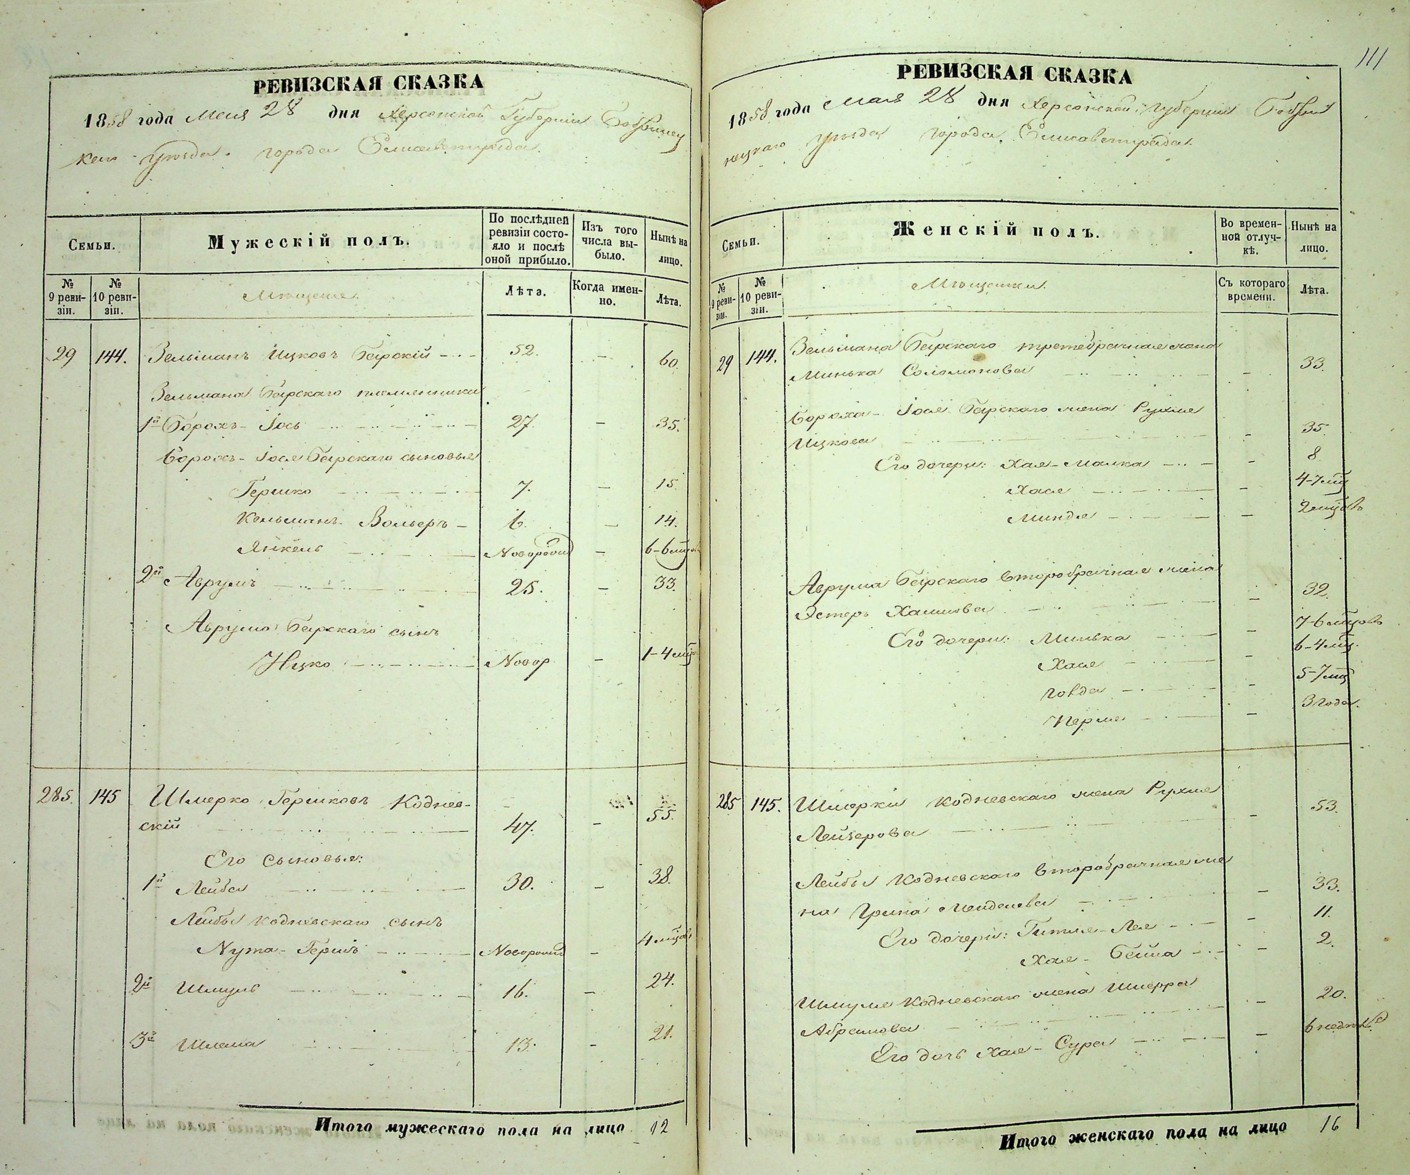 РЕВИЗСКАЯ СКАЗКА
1858 года Мая 28 дня Херсонской Губерніи Бобринец
каго уѣзда города Елисаветграда.
Семьи.
Мужескій полъ.
По послѣдней ревизіи состояло и послѣ оной прибыло.
Изъ того числа выбыло.
Нынѣ на лицо.
№ 9 ревизіи.
№ 10 ревизіи.
Мѣщане.
Лѣта.
Когда именно.
Лѣта.
29 144. Зельманъ Ицковъ Бѣрскій - 52. - 60.
Зельмана Бѣрскаго племянники
1й Борохъ-Іось 27. - 35.
Борохъ-Іося Бѣрскаго сыновья
Гершко 7. - 15
Кельманъ Вольеръ 6. - 14.
Янкель Новорожд - 6-6 мѣс
2й Аврумъ 25. - 33.
Аврума Бѣрскаго сынъ
Ицко Новор - 1-4 мѣс
285. 145 Шмерко Гершковъ Коднев-
скій 47. - 55.
Его сыновья:
1й Лейба 30. - 38.
Лейбы Кодневскаго сынъ
Нута-Гершъ Новорожд - 4 мѣс
2й Шмуль 16. - 24.
3й Шлема 13. - 21.
Итого мужескаго пола на лицо 12
111
РЕВИЗСКАЯ СКАЗКА
1858 года Мая 28 дня Херсонской Губерніи Бобри
нецкаго уѣзда города Елисаветграда.
Семьи.
Женскій полъ.
Во временной отлучкѣ.
Нынѣ на лицо.
№ 9 ревизіи.
№ 10 ревизіи.
Мѣщанки.
Съ котораго времени.
Лѣта.
29 144. Зельмана Бѣрскаго третебрачная жена
Минька Соломонова - 33.
Бороха-Іося Бѣрскаго жена Рухля
Ицкова - 35.
Его дочери: Хая-Малка - 8
Хася - 4-7 мѣс
Минда - 2 мѣсяцовъ
Аврума Бѣрскаго второбрачная жена
Эстеръ Хаимова - 32.
Его дочери: Минька - 7-6 мѣсяцовъ
Хая - 6-4 мѣс.
Говда - 5-7 мѣс
Перля - 3 года.
285 145. Шмерки Кодневскаго жена Рухля
Лейзерова 53.
Лейбы Кодневскаго второбрачная же
на Грина Менделева - 33.
Его дочери: Гитля-Лея - 11.
Хая-Бейла - 2.
Шмуля Кодневскаго жена Шифра
Абрамова - 20.
Его дочь Хая-Сура - 6 недѣль
Итого женскаго пола на лицо 16